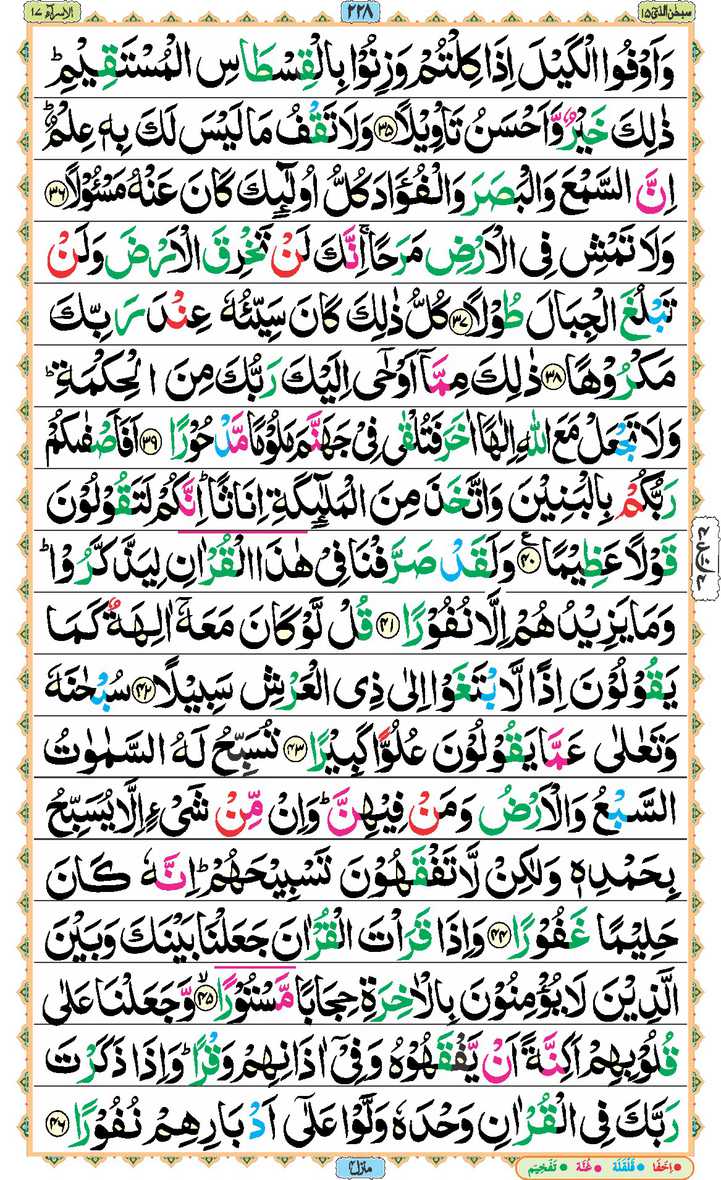 سبحٰن الذیٓ ۱۵
۲۲۸
الاسرآء ۱۷
وَاَوۡفُوا الۡكَيۡلَ اِذَا كِلۡتُمۡ وَزِنُوۡا بِالۡقِسۡطَاسِ الۡمُسۡتَقِيۡمِ‌ؕ
ذٰ لِكَ خَيۡرٌ وَّاَحۡسَنُ تَاۡوِيۡلًا‏ ۳۵ وَلَا تَقۡفُ مَا لَـيۡسَ لَـكَ بِهٖ عِلۡمٌ‌ ؕ
اِنَّ السَّمۡعَ وَالۡبَصَرَ وَالۡفُؤَادَ كُلُّ اُولٰۤـئِكَ كَانَ عَنۡهُ مَسۡـُٔوۡلًا‏ ۳۶
وَلَا تَمۡشِ فِى الۡاَرۡضِ مَرَحًا‌ ۚ اِنَّكَ لَنۡ تَخۡرِقَ الۡاَرۡضَ وَلَنۡ
تَبۡلُغَ الۡجِبَالَ طُوۡلًا‏ ۳۷ كُلُّ ذٰ لِكَ كَانَ سَيِّئُهٗ عِنۡدَ رَبِّكَ
مَكۡرُوۡهًا‏ ۳۸ ذٰ لِكَ مِمَّاۤ اَوۡحٰۤى اِلَيۡكَ رَبُّكَ مِنَ الۡحِكۡمَةِ‌ ؕ
وَلَا تَجۡعَلۡ مَعَ اللّٰهِ اِلٰهًا اٰخَرَ فَتُلۡقٰى فِىۡ جَهَنَّمَ مَلُوۡمًا مَّدۡحُوۡرًا‏ ۳۹ اَفَاَصۡفٰٮكُمۡ
رَبُّكُمۡ بِالۡبَنِيۡنَ وَ اتَّخَذَ مِنَ الۡمَلٰۤـئِكَةِ اِنَاثًا‌ ؕ اِنَّكُمۡ لَتَقُوۡلُوۡنَ
قَوۡلًا عَظِيۡمًا‏ ۴۰ وَلَقَدۡ صَرَّفۡنَا فِىۡ هٰذَا الۡقُرۡاٰنِ لِيَذَّكَّرُوۡا ؕ
وَمَا يَزِيۡدُهُمۡ اِلَّا نُفُوۡرًا‏ ۴۱ قُلْ لَّوۡ كَانَ مَعَهٗۤ اٰلِهَةٌ كَمَا
يَقُوۡلُوۡنَ اِذًا لَّابۡتَغَوۡا اِلٰى ذِى الۡعَرۡشِ سَبِيۡلًا‏ ۴۲ سُبۡحٰنَهٗ
وَتَعٰلٰى عَمَّا يَقُوۡلُوۡنَ عُلُوًّا كَبِيۡرًا‏ ۴۳ تُسَبِّحُ لَهُ السَّمٰوٰتُ
السَّبۡعُ وَالۡاَرۡضُ وَمَنۡ فِيۡهِنَّ‌ؕ وَاِنۡ مِّنۡ شَىۡءٍ اِلَّا يُسَبِّحُ
بِحَمۡدِهٖ وَلٰـكِنۡ لَّا تَفۡقَهُوۡنَ تَسۡبِيۡحَهُمۡ‌ؕ اِنَّهٗ كَانَ
حَلِيۡمًا غَفُوۡرًا‏ ۴۴ وَاِذَا قَرَاۡتَ الۡقُرۡاٰنَ جَعَلۡنَا بَيۡنَكَ وَبَيۡنَ
الَّذِيۡنَ لَا يُؤۡمِنُوۡنَ بِالۡاٰخِرَةِ حِجَابًا مَّسۡتُوۡرًا ۙ‏ ۴۵ وَّجَعَلۡنَا عَلٰى
قُلُوۡبِهِمۡ اَكِنَّةً اَنۡ يَّفۡقَهُوۡهُ وَفِىۡۤ اٰذَانِهِمۡ وَقۡرًا‌ ؕ وَاِذَا ذَكَرۡتَ
رَبَّكَ فِى الۡقُرۡاٰنِ وَحۡدَهٗ وَلَّوۡا عَلٰٓى اَدۡبَارِهِمۡ نُفُوۡرًا‏ ۴۶
منزل ۴
اِخفَا قَلقَلَة غُنَّه تَفْخِیْم